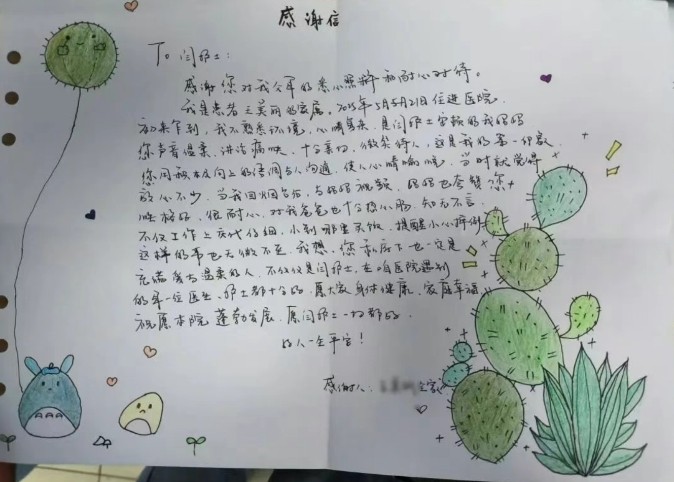 感谢信
To 闫护士：
感谢您对我父母的悉心照料和耐心对待。
我是患者王美丽的家属。2025年5月21日住进医院，
初来乍到，我不熟悉环境，心情复杂。是闫护士安顿的我妈妈
您声音温柔，讲话痛快，十分亲切，微笑待人，这是我的第一印象
您用积极向上的语调与人沟通，使人心情愉悦，当时就觉得
放心不少，当我回烟台后，与妈妈视频，妈妈也夸赞您
性格好，很耐心，对我爸爸也十分热心肠，知无不言
不仅工作上交代仔细，小到哪里不做，提醒小心摔倒
这样的事也无微不至。我想，您私底下也一定是
充满爱与温柔的人，不仅仅是闫护士，在咱医院遇到
的每一位医生、护士都十分好，愿大家身体健康，家庭幸福
祝愿本院蓬勃发展，愿闫护士一切都好
好人一生平安！
感谢人： 全家